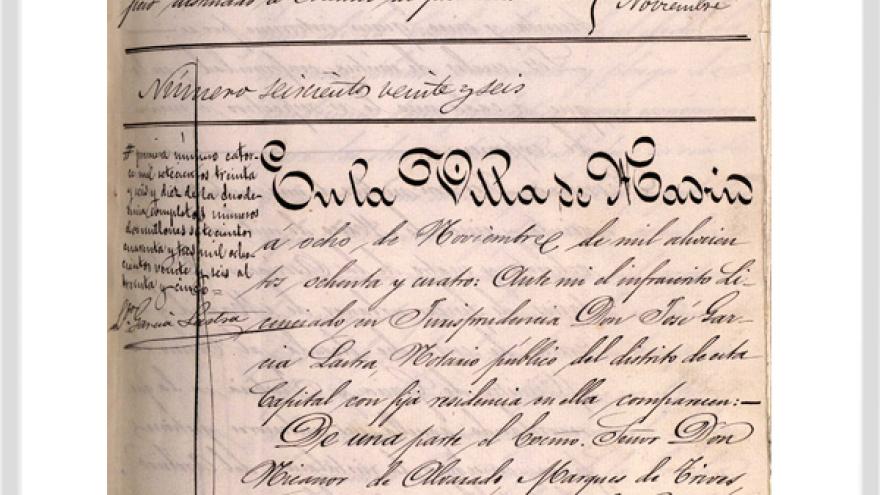 Noviembre
Número seiscientos veinte y seis
primera número cator-
ce mil setecientos treinta
y seis y diez de la duode-
cima, completos números
dos millones setecientos
cuarenta y tres mil ocho-
cientos veinte y seis al
treinta y cinco
Ldo. García Lastra
En la Villa de Madrid
á ocho de Noviembre de mil ochocien
tos ochenta y cuatro: Ante mi el infrascrito Li-
cenciado en Jurisprudencia Don José Gar-
cia Lastra Notario público del distrito de esta
Capital con fija residencia en ella comparecen:—
De una parte el Excmo. Señor Don
Nicanor de Alvarado Marques de Trives